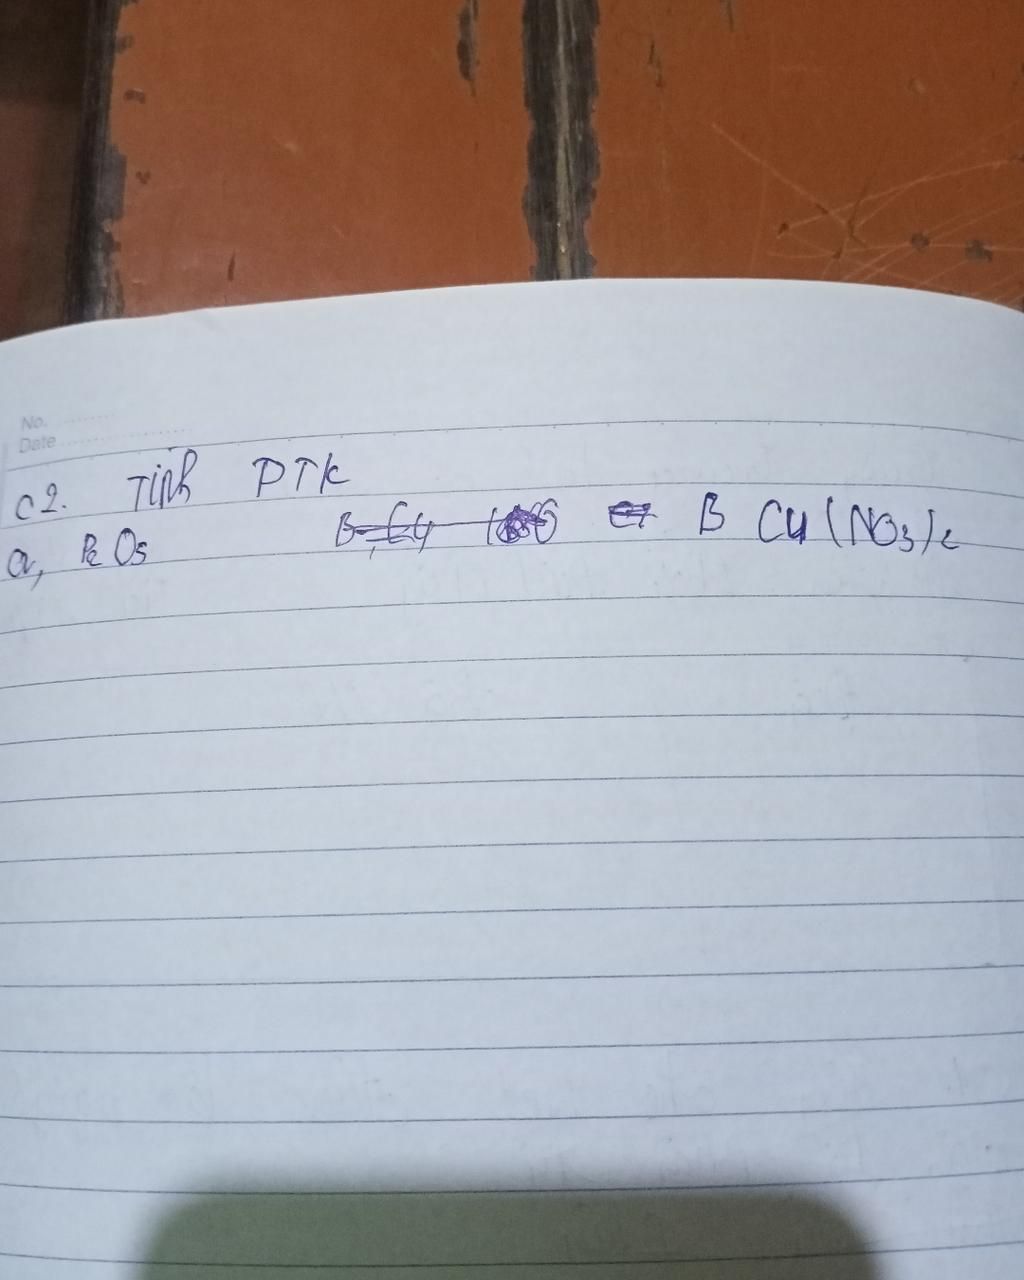 No.
Date
C2. Tính PTK
a, P2O5 B Cu (NO3)2